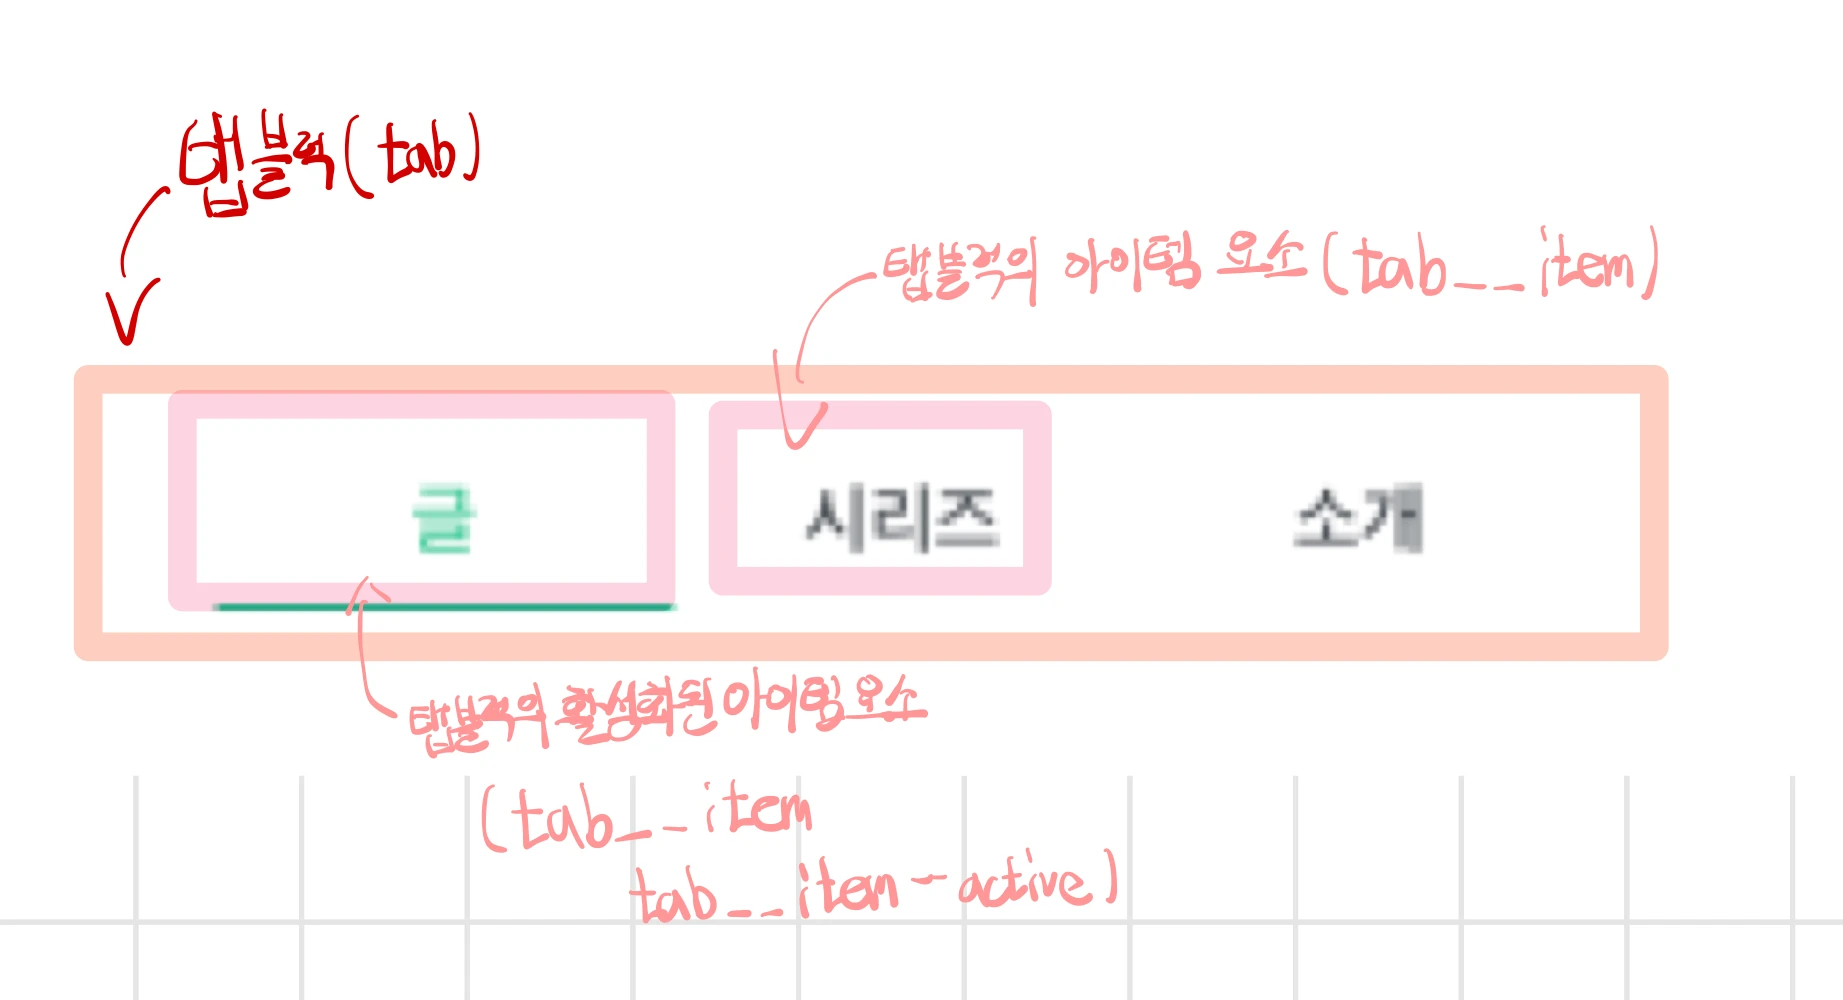 탭블럭(tab)
탭블럭의 아이템 요소(tab__item)
글 시리즈 소개
탭블럭의 활성화된 아이템요소
(tab__item
tab__item-active)